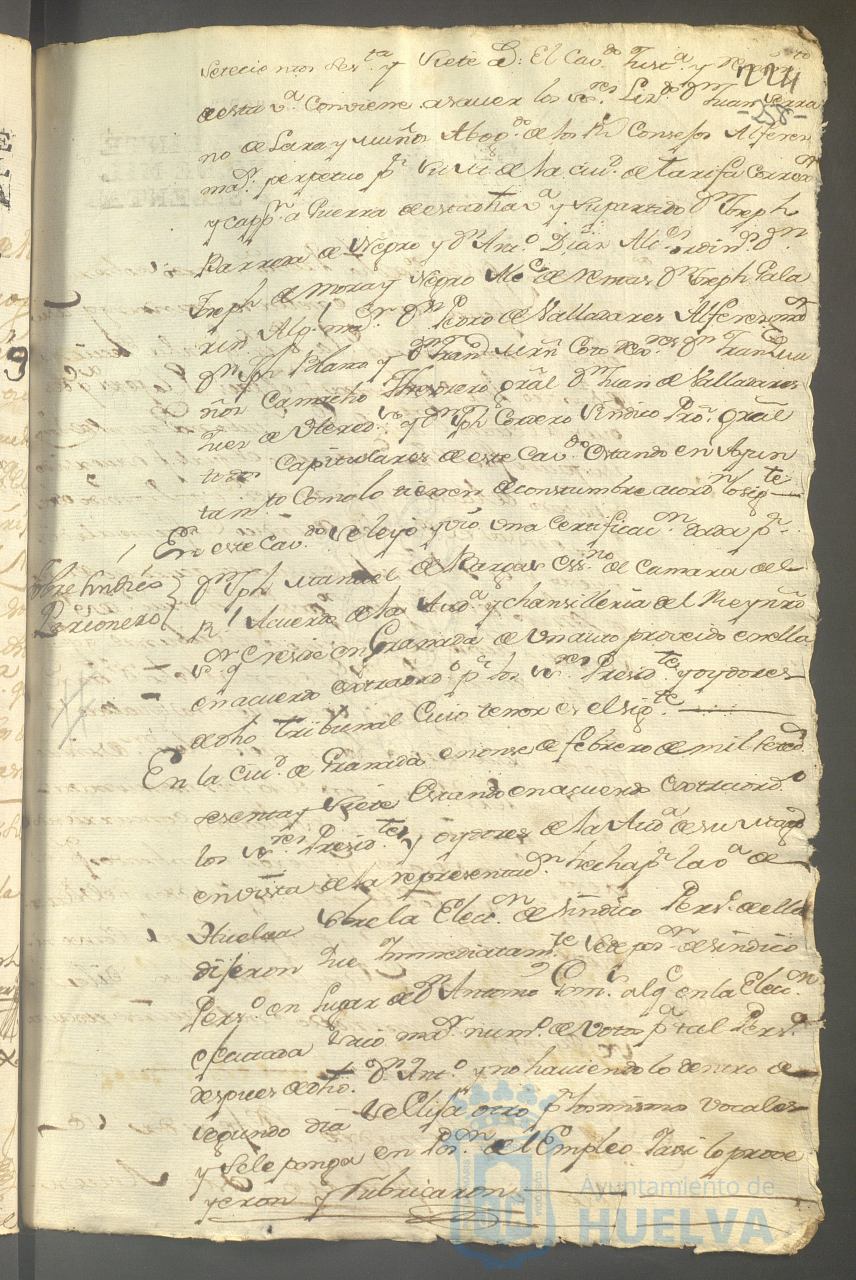 setecientos ses.ta y siete a.s: El Cav.do Just.a y rexim.to
224
de esta v.a Conviene a saver los s.res Liz.do D.n Juan Serra
-58-
no de Lara y Muñoz Abog.do de los R.s Consejos Alferez
m.or perpetuo p.r su M. de la ciu.d de tarifa Correx.or
y capp.n a Guerra de esta dha v.a y su partido D.n Joseph
Barrera de Negro y D.n Ant.o Diaz Alc.es ordin.s D.n
Joseph de Mora y Negro Alc.e de D.n Joseph
Alg.l m.or D.n Pedro de Valladares Alferez
D.n Jph Blanco y D.n Fran.co Mrn Coto D.n Juan
ñoz Camacho thesorero gral D.n Juan de Valladares
Juez de y D.n Jph Cordero Sindico Pro.r gral
todos Capitulares de este Cav.do Estando en Ayun
tam.to Como lo tienen de costumbre acord.n lo sig.te
En este Cav.do se leyo y vio una Certificac.n dada p.r
Sobre Sindico
Personero
D.n Jph Manuel de Vargas Ess.no de Camara del
R.l Acuerdo de la Aud.a y chansilleria del Reyno
q.e reside en Granada de un auto proveido en ella
en acuerdo extraord.o p.r los s.res Presid.te y oydores
de dho tribunal Cuio tenor es el sig.te
En la ciu.d de Granada en onse de febrero de mil setec.s
sesenta y siete Estando en acuerdo extraord.o
los s.res Presid.te y oydores de la Aud.a de su Mag.d
en vista de la representac.n hecha p.r la v.a de
Huelva sobre la Elecc.n de Sindico Pers.o de ella
dijeron que Immediatam.te se de pos.n de sindico
Pers.o en lugar de D.n Antonio al q.e en la Elecc.n
executada tuvo m.or num.o de votos p.a tal Pers.o
despues de dho D.n Ant.o y no haciendolo dentro de
segundo dia se elija otro p.r los mismos vocales
y se le ponga en pos.on del Empleo y asi lo prove
yeron y Rubricaron
Ayuntamiento de
HUELVA